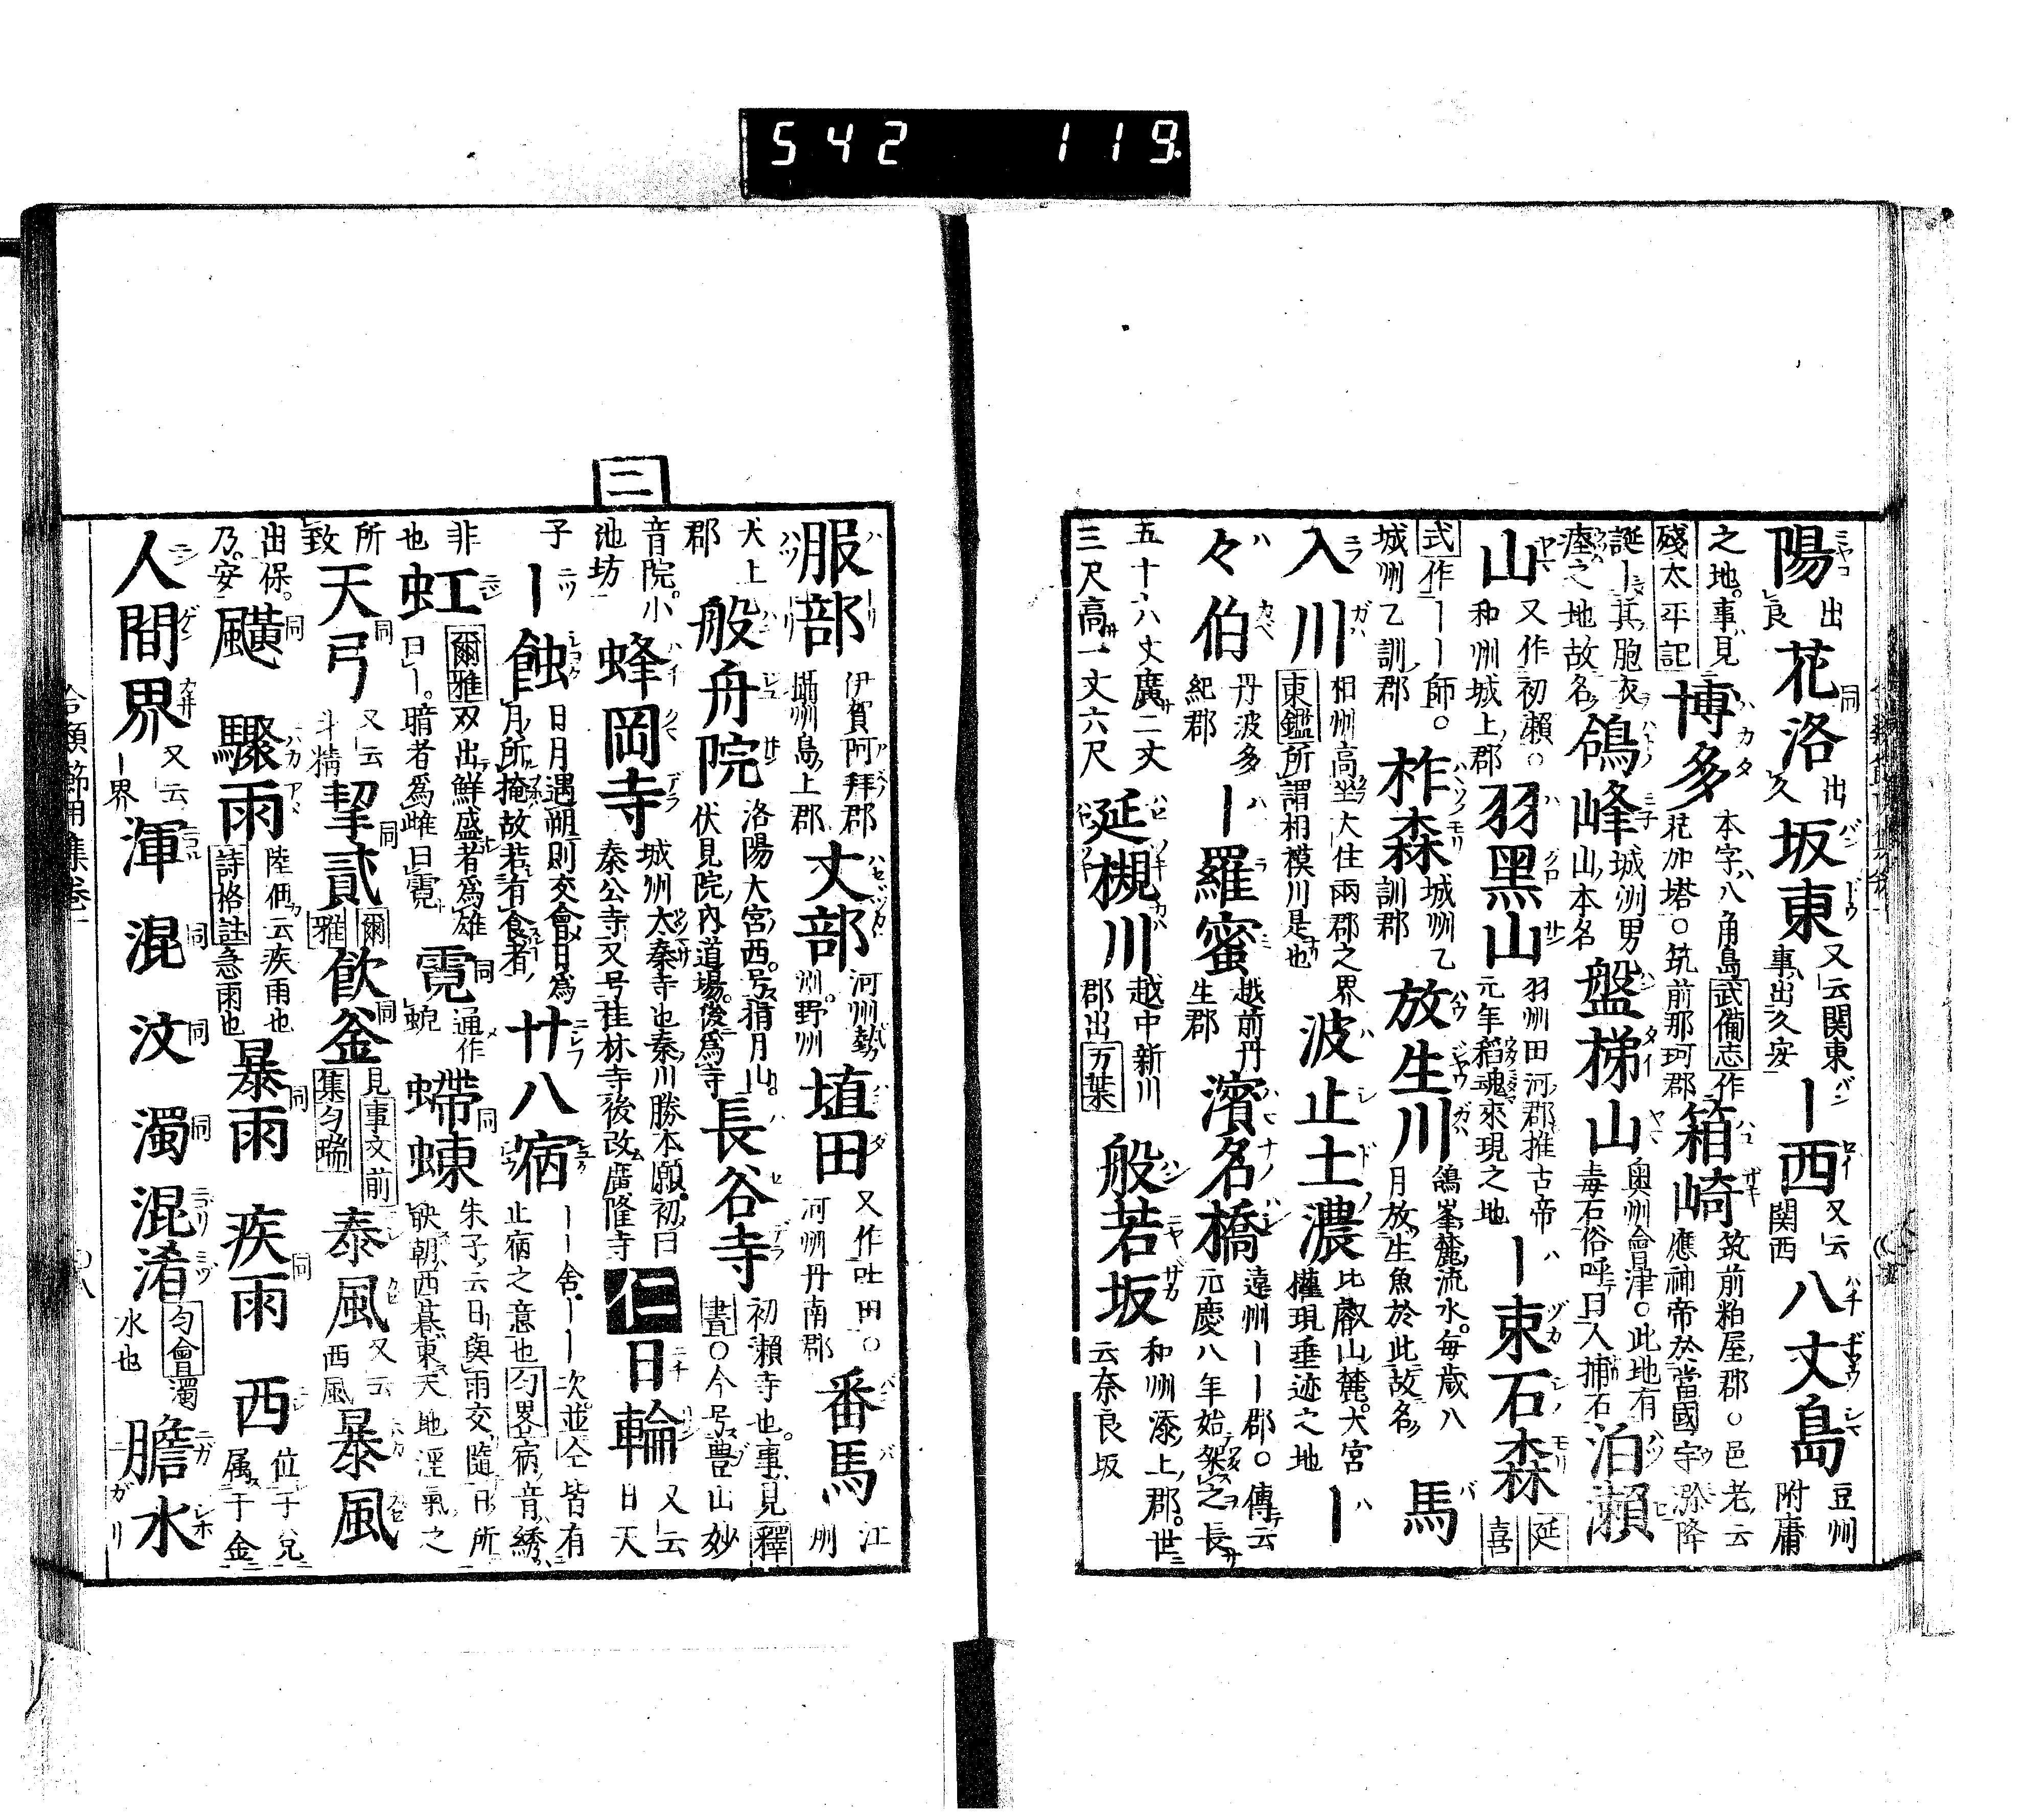 542 119.
陽出良花洛出久坂東又云関東事出久安ー西又云関西八丈島豆州附庸
之地事見殘太平記博多本字八角島武備志作花加塔○筑前那珂郡箱崎筑前粕屋郡○邑老云應神帝於當國宇瀰降
誕ー其胞衣瘞之地故名鴿峰城洲男山本名盤梯山奥州會津○此地有毒石俗呼曰人捕石泊瀬
山又作初瀬○和州城上郡羽黑山羽州田河郡推古帝元年稻魂來現之地ー束石森延喜
式作ーー師。城州乙訓郡柞森城洲乙訓郡放生川鴿峯麓流水。毎歳八月放生魚於此故名馬
入川相州高坐大住兩郡之界東鑑所謂相模川是也波止土濃比叡山麓。大宮權現垂迹之地ー
々伯丹波多紀郡ー羅蜜越前丹生郡濱名橋遠州ーー郡○傳云元慶八年始架之長
五十六丈廣二丈三尺高一丈六尺延槻川越中新川郡出万葉般若坂和洲添上郡。世云奈良坂
二
服部伊賀阿拜郡攝洲島上郡丈部河州勢洲。野洲埴田又作吐田○河州丹南郡番馬江州
犬上郡般舟院洛陽大宮西。号稍月山。伏見院内道場。後爲寺長谷寺初瀬寺也。事見釋書○今号豊山妙
音院。小池坊蜂岡寺城洲太秦寺也秦川勝本願。初曰秦公寺又号桂林寺後改廣隆寺仁日輪又云日天
子ー蝕日月遇朔則交會日爲月所掩故若有食者廿八宿ーー舍ーー次。並仝皆有止宿之意也匀畧宿音綉
非也虹爾雅双出鮮盛者爲雄曰ー。暗者爲雌曰霓霓同通作蜺螮蝀同朱子云日與雨交隨日所映朝西暮東天地淫氣之
所致天弓同又云斗精挈貳同爾雅飮釜同見事文前集匀瑞泰風又云西風暴風
出保。乃。安颶同驟雨陸佃云疾雨也詩格註急雨也暴雨同疾雨同西位于兌属于金
人間界又云ー界渾混同汶同濁同混淆匀會濁水也膽水
合類節用集巻一